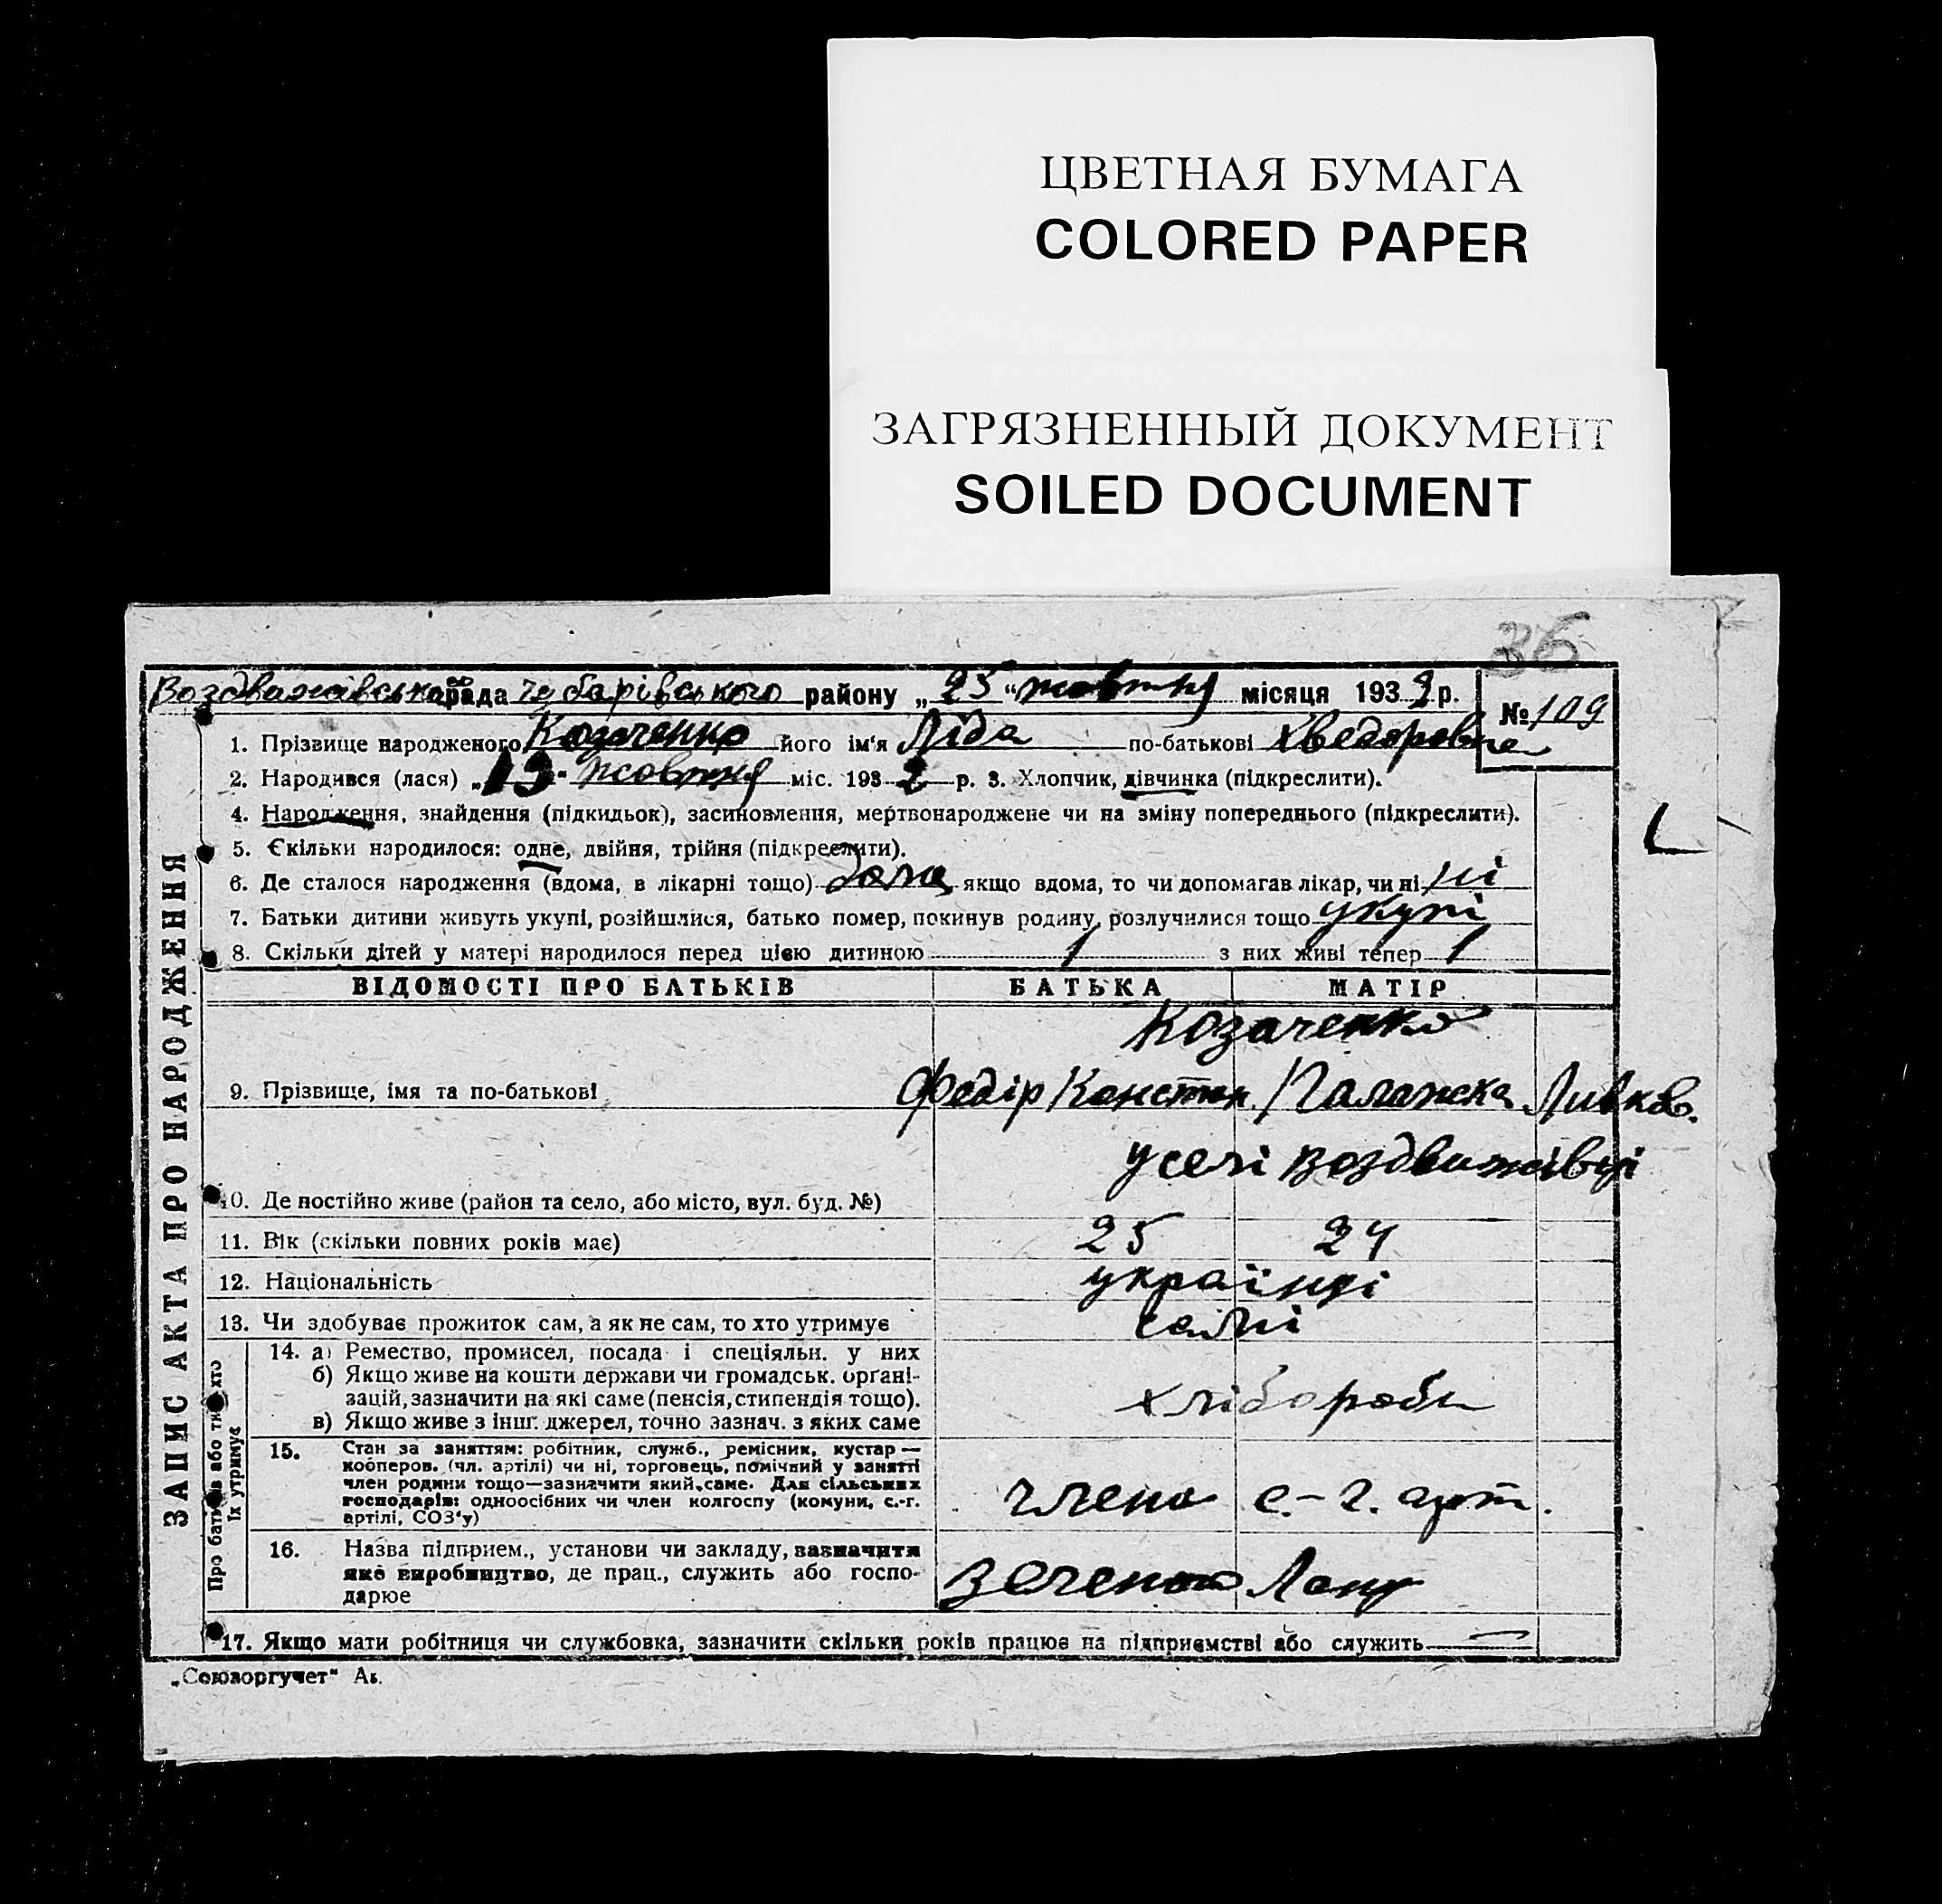 ЦВЕТНАЯ БУМАГА
COLORED PAPER
ЗАГРЯЗНЕННЫЙ ДОКУМЕНТ
SOILED DOCUMENT
36
Воздвижівська рада Чубарівського району „25“ жовтня місяця 1932 р.
№ 109
1. Прізвище народженого Козаченко його ім'я Ліда по-батькові Хведоровна
2. Народився (лася) „13“ жовтня міс. 1932 р. 3. Хлопчик, дівчинка (підкреслити).
4. Народження, знайдення (підкидьок), засиновлення, мертвонароджене чи на зміну попереднього (підкреслити).
5. Скільки народилося: одне, двійня, трійня (підкреслити).
6. Де сталося народження (вдома, в лікарні тощо) дома якщо вдома, то чи допомагав лікар, чи ні ні
7. Батьки дитини живуть укупі, розійшлися, батько помер, покинув родину, розлучилися тощо укупі
8. Скільки дітей у матері народилося перед цією дитиною 1 з них живі тепер 1
ВІДОМОСТІ ПРО БАТЬКІВ БАТЬКА МАТІР
Козаченко
9. Прізвище, імя та по-батькові Федір Констан. / Палажка Ливков.
у селі Воздвижівці
10. Де постійно живе (район та село, або місто, вул. буд. №)
11. Вік (скільки повних років має) 25 24
12. Національність українці
13. Чи здобуває прожиток сам, а як не сам, то хто утримує самі
14. а) Ремество, промисел, посада і спеціяльн. у них
б) Якщо живе на кошти держави чи громадськ. орґані-
зацій, зазначити на які саме (пенсія, стипендія тощо).
в) Якщо живе з інш. джерел, точно зазнач. з яких саме
хлібороби
15. Стан за заняттям: робітник, служб., ремісник, кустар —
кооперов. (чл. артілі) чи ні, торговець, помічний у занятті
член родини тощо—зазначити який саме. Для сільських
господарів: одноосібних чи член колгоспу (комуни, с.-г.
артілі, СОЗ'у)
члено с.-г. арт.
16. Назва підприєм., установи чи закладу, зазначити
яке виробництво, де прац., служить або госпо-
дарює
Лану
17. Якщо мати робітниця чи службовка, зазначити скільки років працює на підприємстві або служить —
ЗАПИС АКТА ПРО НАРОДЖЕННЯ
Про батьків або тих хто
їх утримує
„Союзоргучет“